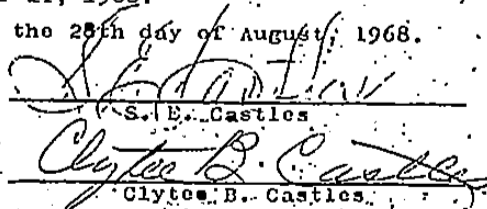 1968.
the 28th day of August, 1968.
S. E. Castles
S. E. Castles
Clytee B. Castles
Clytee B. Castles